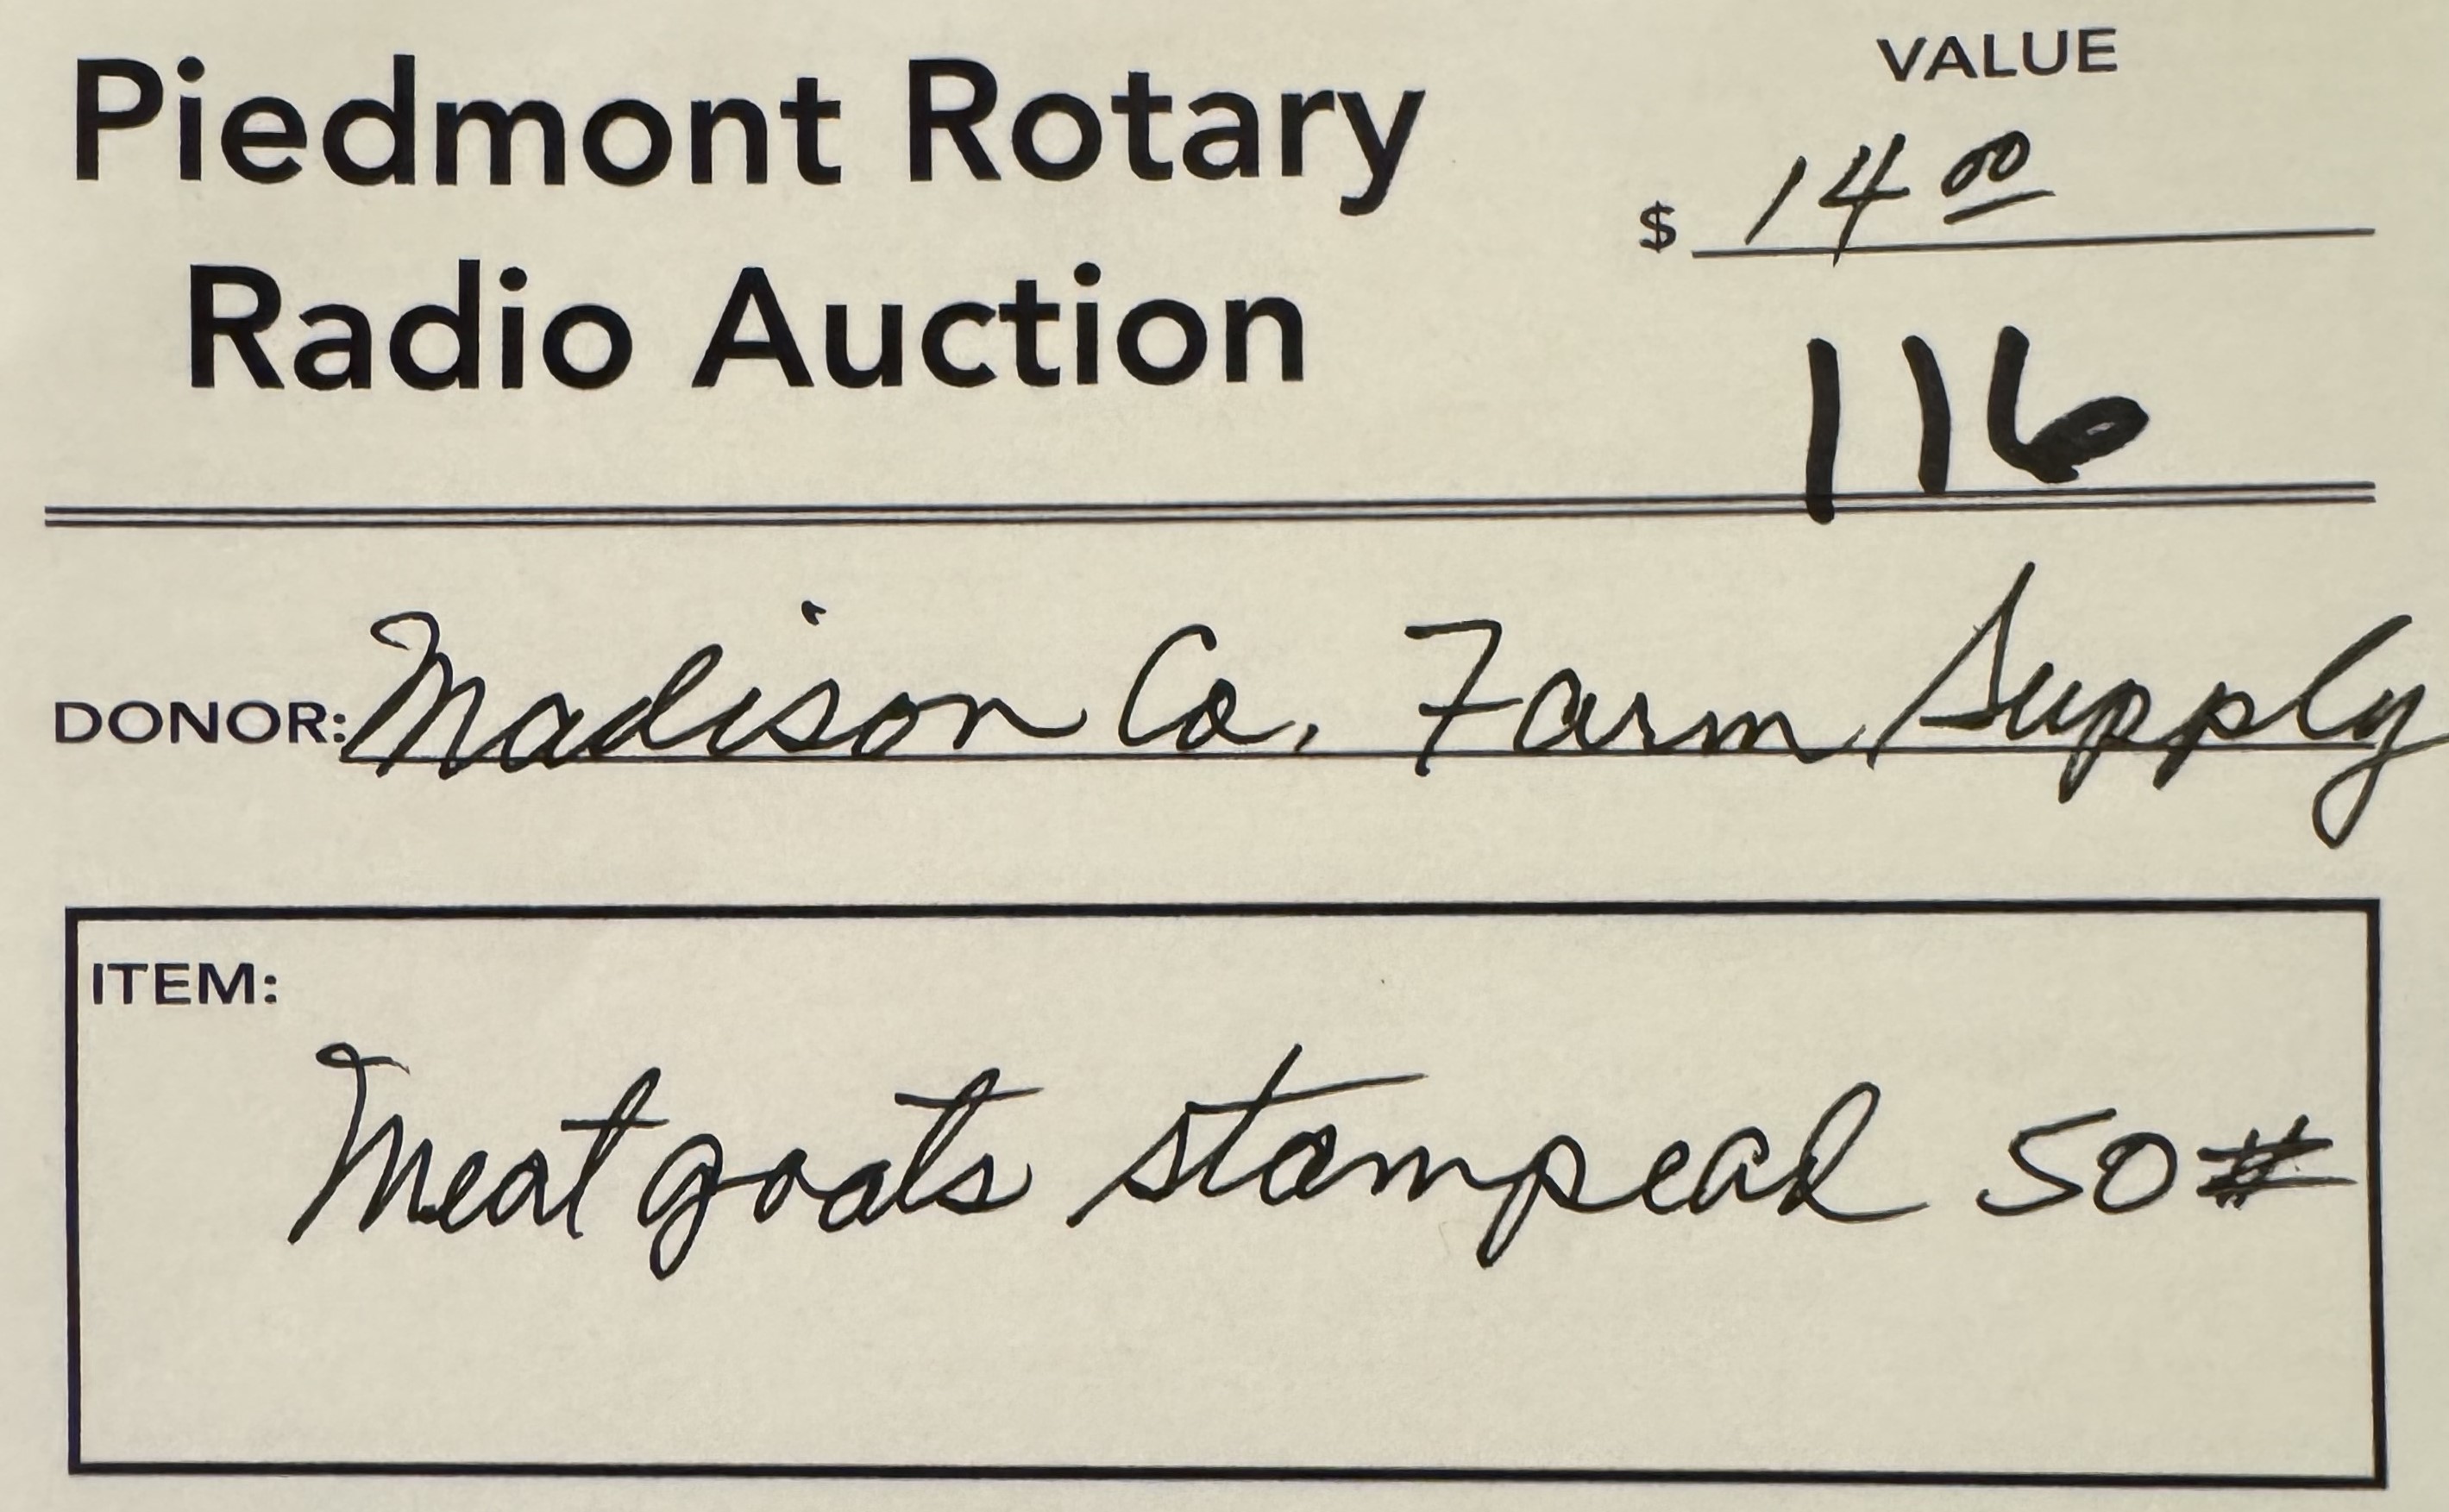 Piedmont Rotary
Radio Auction
VALUE
$ 14 00
116
DONOR: Madison Co. Farm Supply
ITEM:
Meat goats stampead 50#